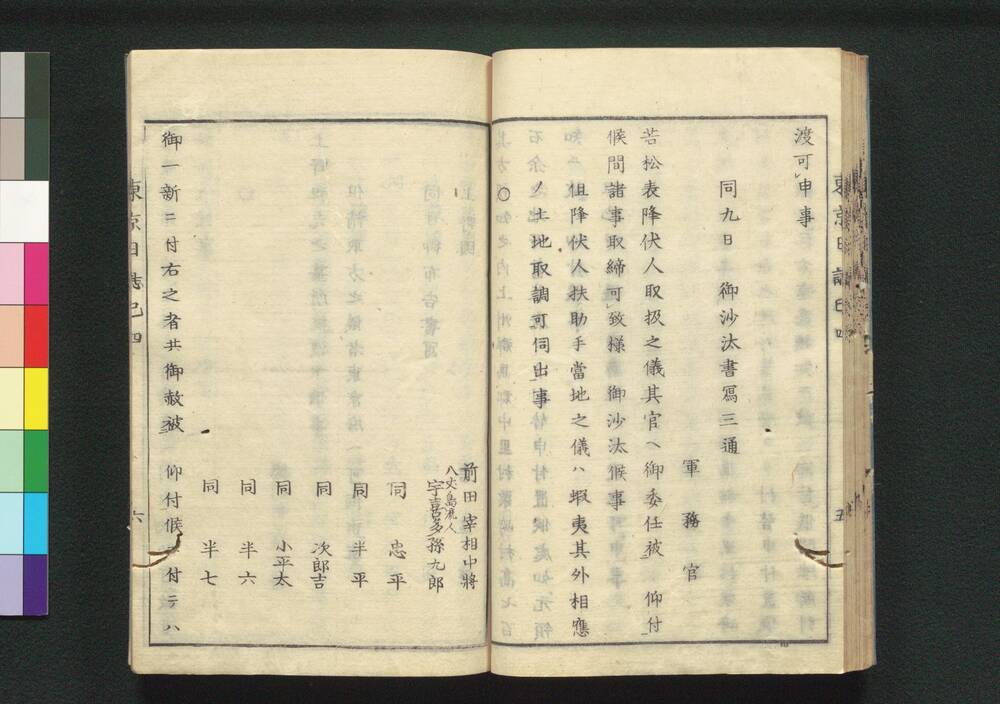 渡可申事
同九日御沙汰書寫三通
軍務官
若松表降伏人取扱之儀其官ヘ御委任被 仰付
候間諸事取締可致様 御沙汰候事
但降伏人扶助手當地之儀ハ蝦夷其外相應
ノ土地取調可伺出事
○
前田宰相中將
八丈島流人
宇喜多孫九郎
同 忠平
同 半平
同 次郎吉
同 小平太
同 半六
同 半七
御一新ニ付右之者共御赦被 仰付候 付テハ
東京日誌 四
六
五